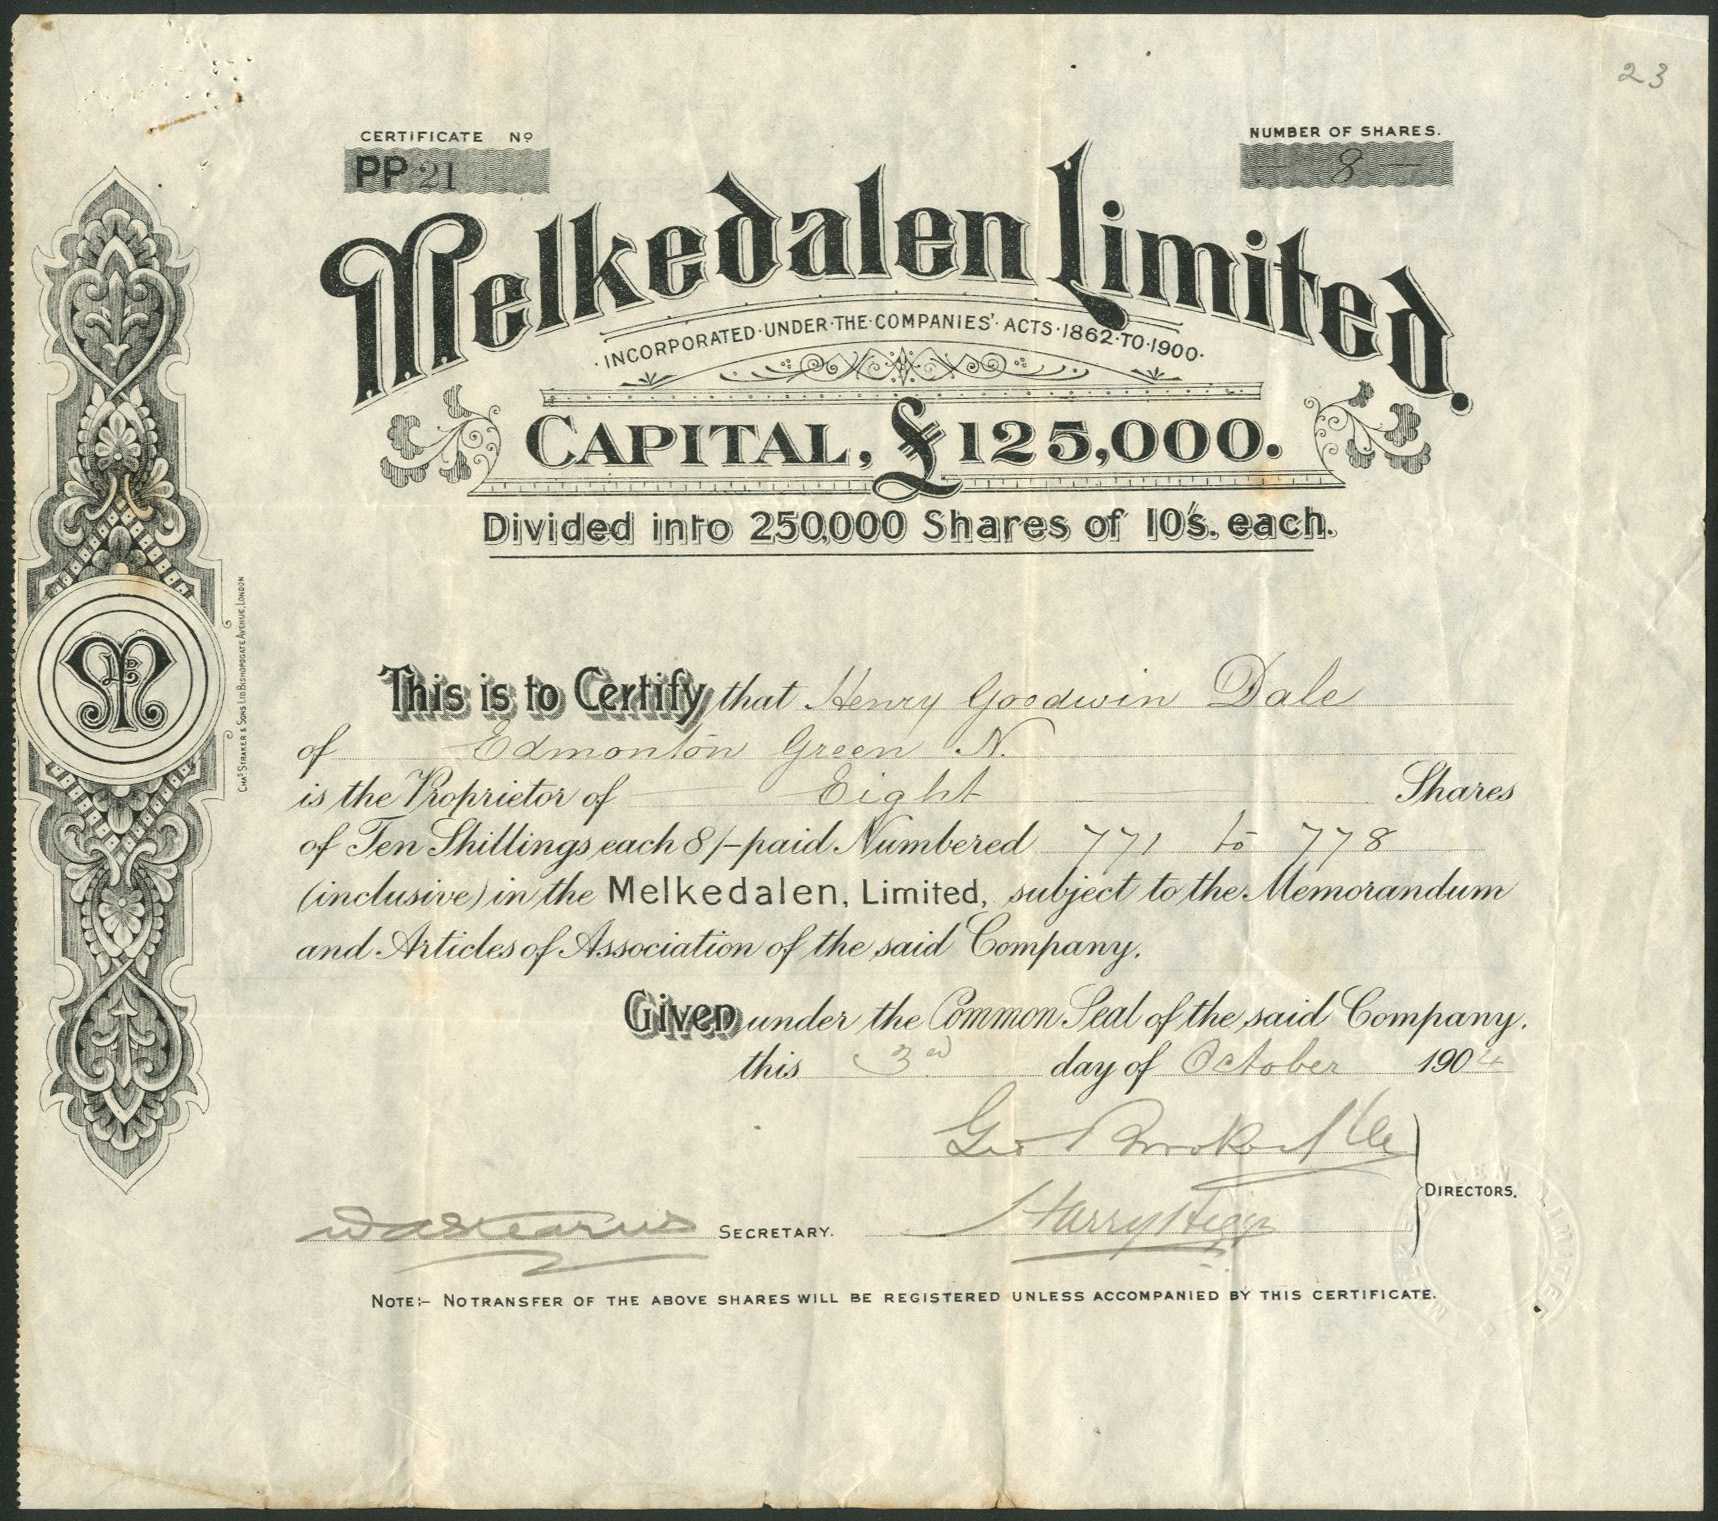 23
CERTIFICATE No
PP 21
NUMBER OF SHARES.
- 8 -
Melkedalen Limited.
·INCORPORATED·UNDER·THE·COMPANIES'·ACTS·1862·TO·1900·
CAPITAL, £125,000.
Divided into 250,000 Shares of 10's. each.
CHAS STRAKER & SONS LTD BISHOPSGATE AVENUE, LONDON
This is to Certify that Henry Goodwin Dale
of Edmonton Green N.
is the Proprietor of Eight Shares
of Ten Shillings each 8/- paid Numbered 771 to 778
(inclusive) in the Melkedalen, Limited, subject to the Memorandum
and Articles of Association of the said Company.
Given under the Common Seal of the said Company.
this 3rd day of October 1904
Geo
DIRECTORS.
Harry
SECRETARY.
NOTE:- NO TRANSFER OF THE ABOVE SHARES WILL BE REGISTERED UNLESS ACCOMPANIED BY THIS CERTIFICATE.